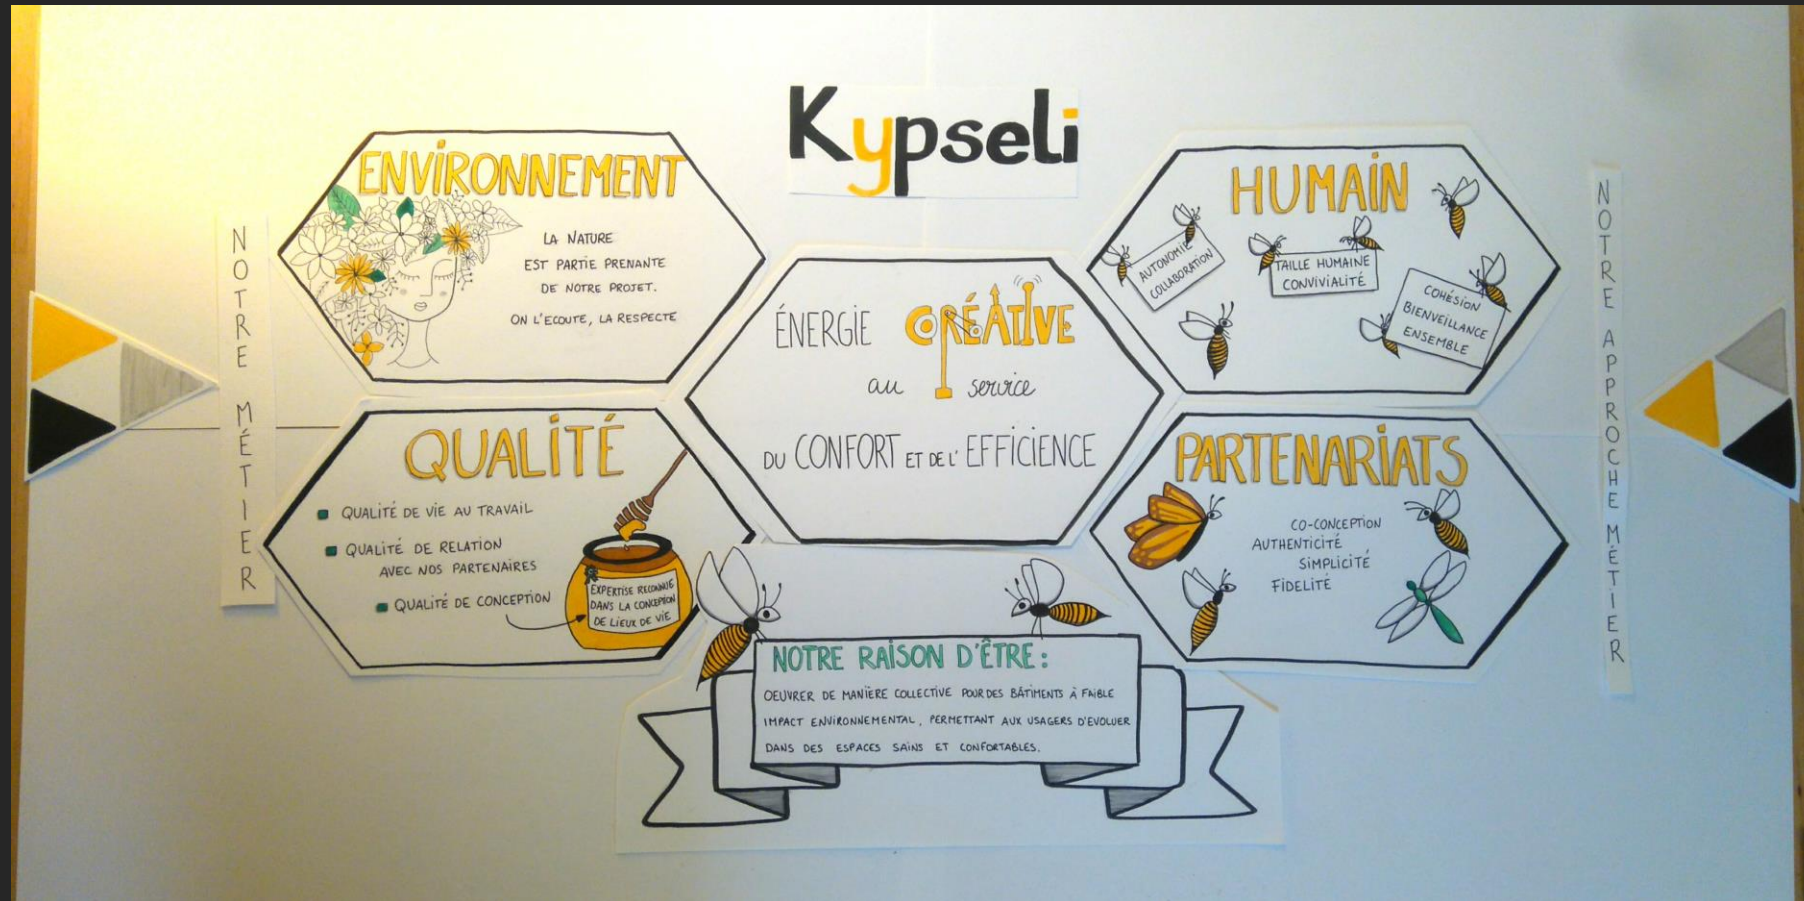 Kypseli
NOTRE MÉTIER
ENVIRONNEMENT
LA NATURE
EST PARTIE PRENANTE
DE NOTRE PROJET.
ON L'ECOUTE, LA RESPECTE
QUALITÉ
QUALITÉ DE VIE AU TRAVAIL
QUALITÉ DE RELATION
AVEC NOS PARTENAIRES
QUALITÉ DE CONCEPTION
EXPERTISE RECONNUE
DANS LA CONCEPTION
DE LIEUX DE VIE
ÉNERGIE CRÉATIVE
au service
DU CONFORT ET DE L'EFFICIENCE
HUMAIN
AUTONOMIE
COLLABORATION
TAILLE HUMAINE
CONVIVIALITÉ
COHÉSION
BIENVEILLANCE
ENSEMBLE
PARTENARIATS
CO-CONCEPTION
AUTHENTICITÉ
SIMPLICITÉ
FIDELITÉ
NOTRE APPROCHE MÉTIER
NOTRE RAISON D'ÊTRE :
OEUVRER DE MANIÈRE COLLECTIVE POUR DES BÂTIMENTS À FAIBLE
IMPACT ENVIRONNEMENTAL, PERMETTANT AUX USAGERS D'EVOLUER
DANS DES ESPACES SAINS ET CONFORTABLES.